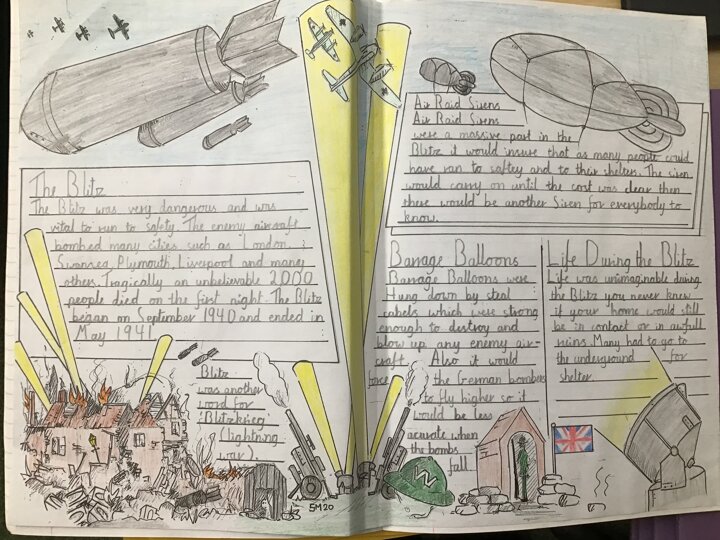 The Blitz
The Blitz was very dangerous and was
vital to run to safety. The enemy aircraft
bombed many cities such as London,
Swansea, Plymouth, Liverpool and many
others. Tragically an unbelievable 2000
people died on the first night. The Blitz
began on September 1940 and ended in
May 1941
Blitz
was another
word for
'Blitzkrieg'
(lightning
war).
5M20
Air Raid Sirens
Air Raid Sirens
were a massive part in the
Blitz it would insure that as many people could
have ran to saftey and to their shelters. The siren
would carry on until the cost was clear then
there would be another Siren for everybody to
know.
Barrage Balloons
Barrage Balloons were
Hung down by steal
cabels which were strong
enough to destroy and
blow up any enemy air-
craft. Also it would
force the German bombers
to fly higher so it
would be less
acurate when
the bombs
fall.
W
Life During the Blitz
Life was unimaginable during
the Blitz you never knew
if your home would still
be in contact or in awfull
ruins. Many had to go to
the underground for
shelter.